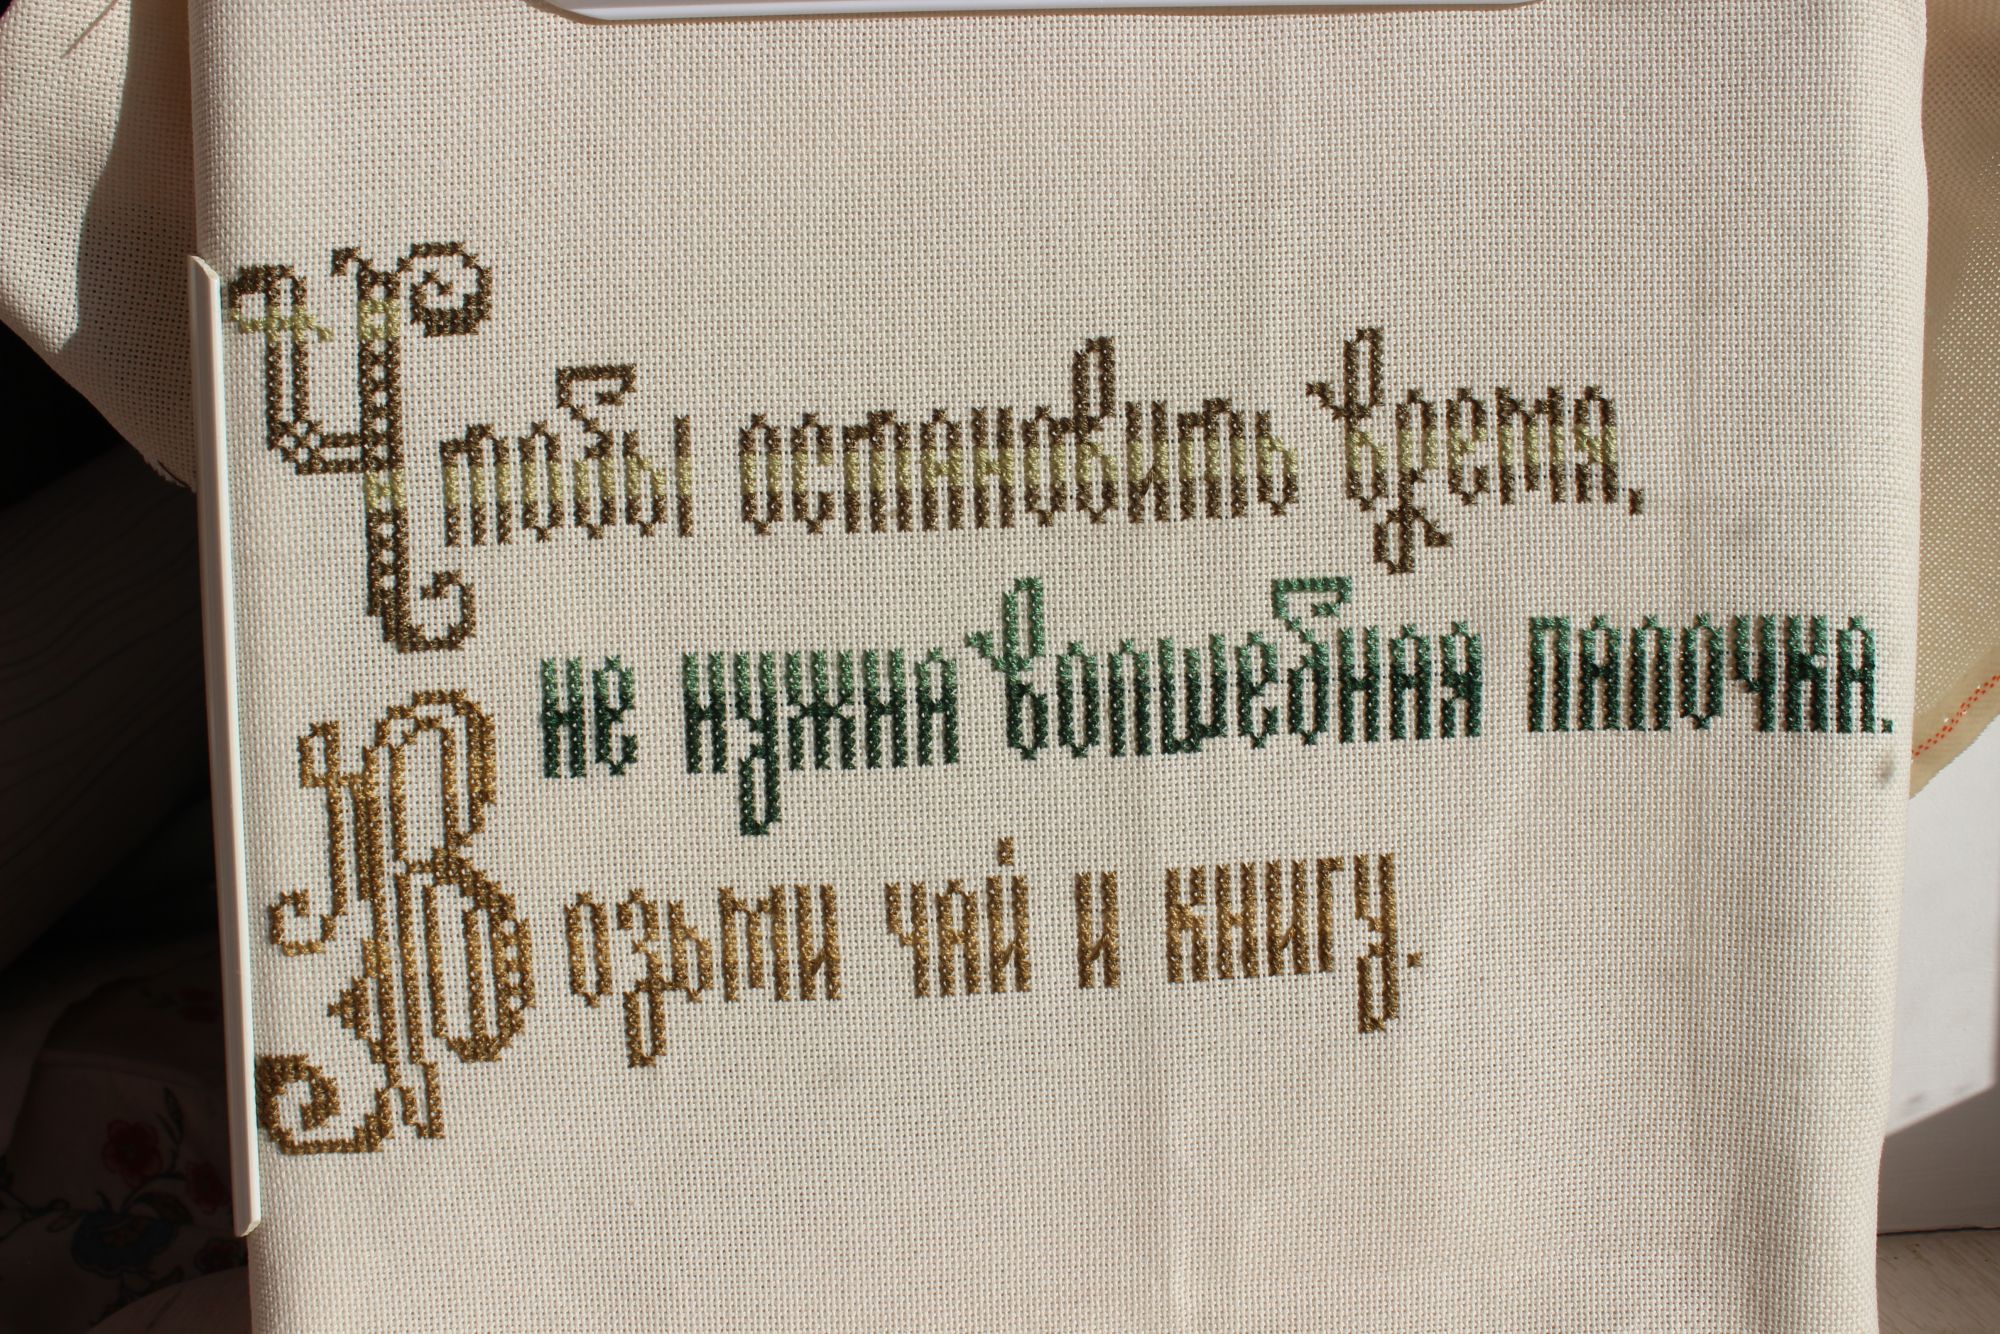 Чтобы остановить время,
не нужна волшебная палочка.
Возьми чай и книгу.